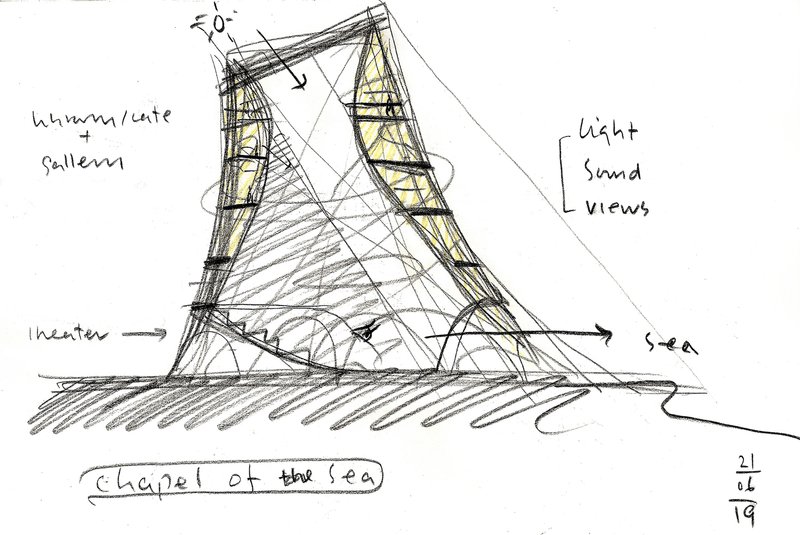 +
gallery
light
sound
views
theater
sea
chapel of the sea
21
06
19